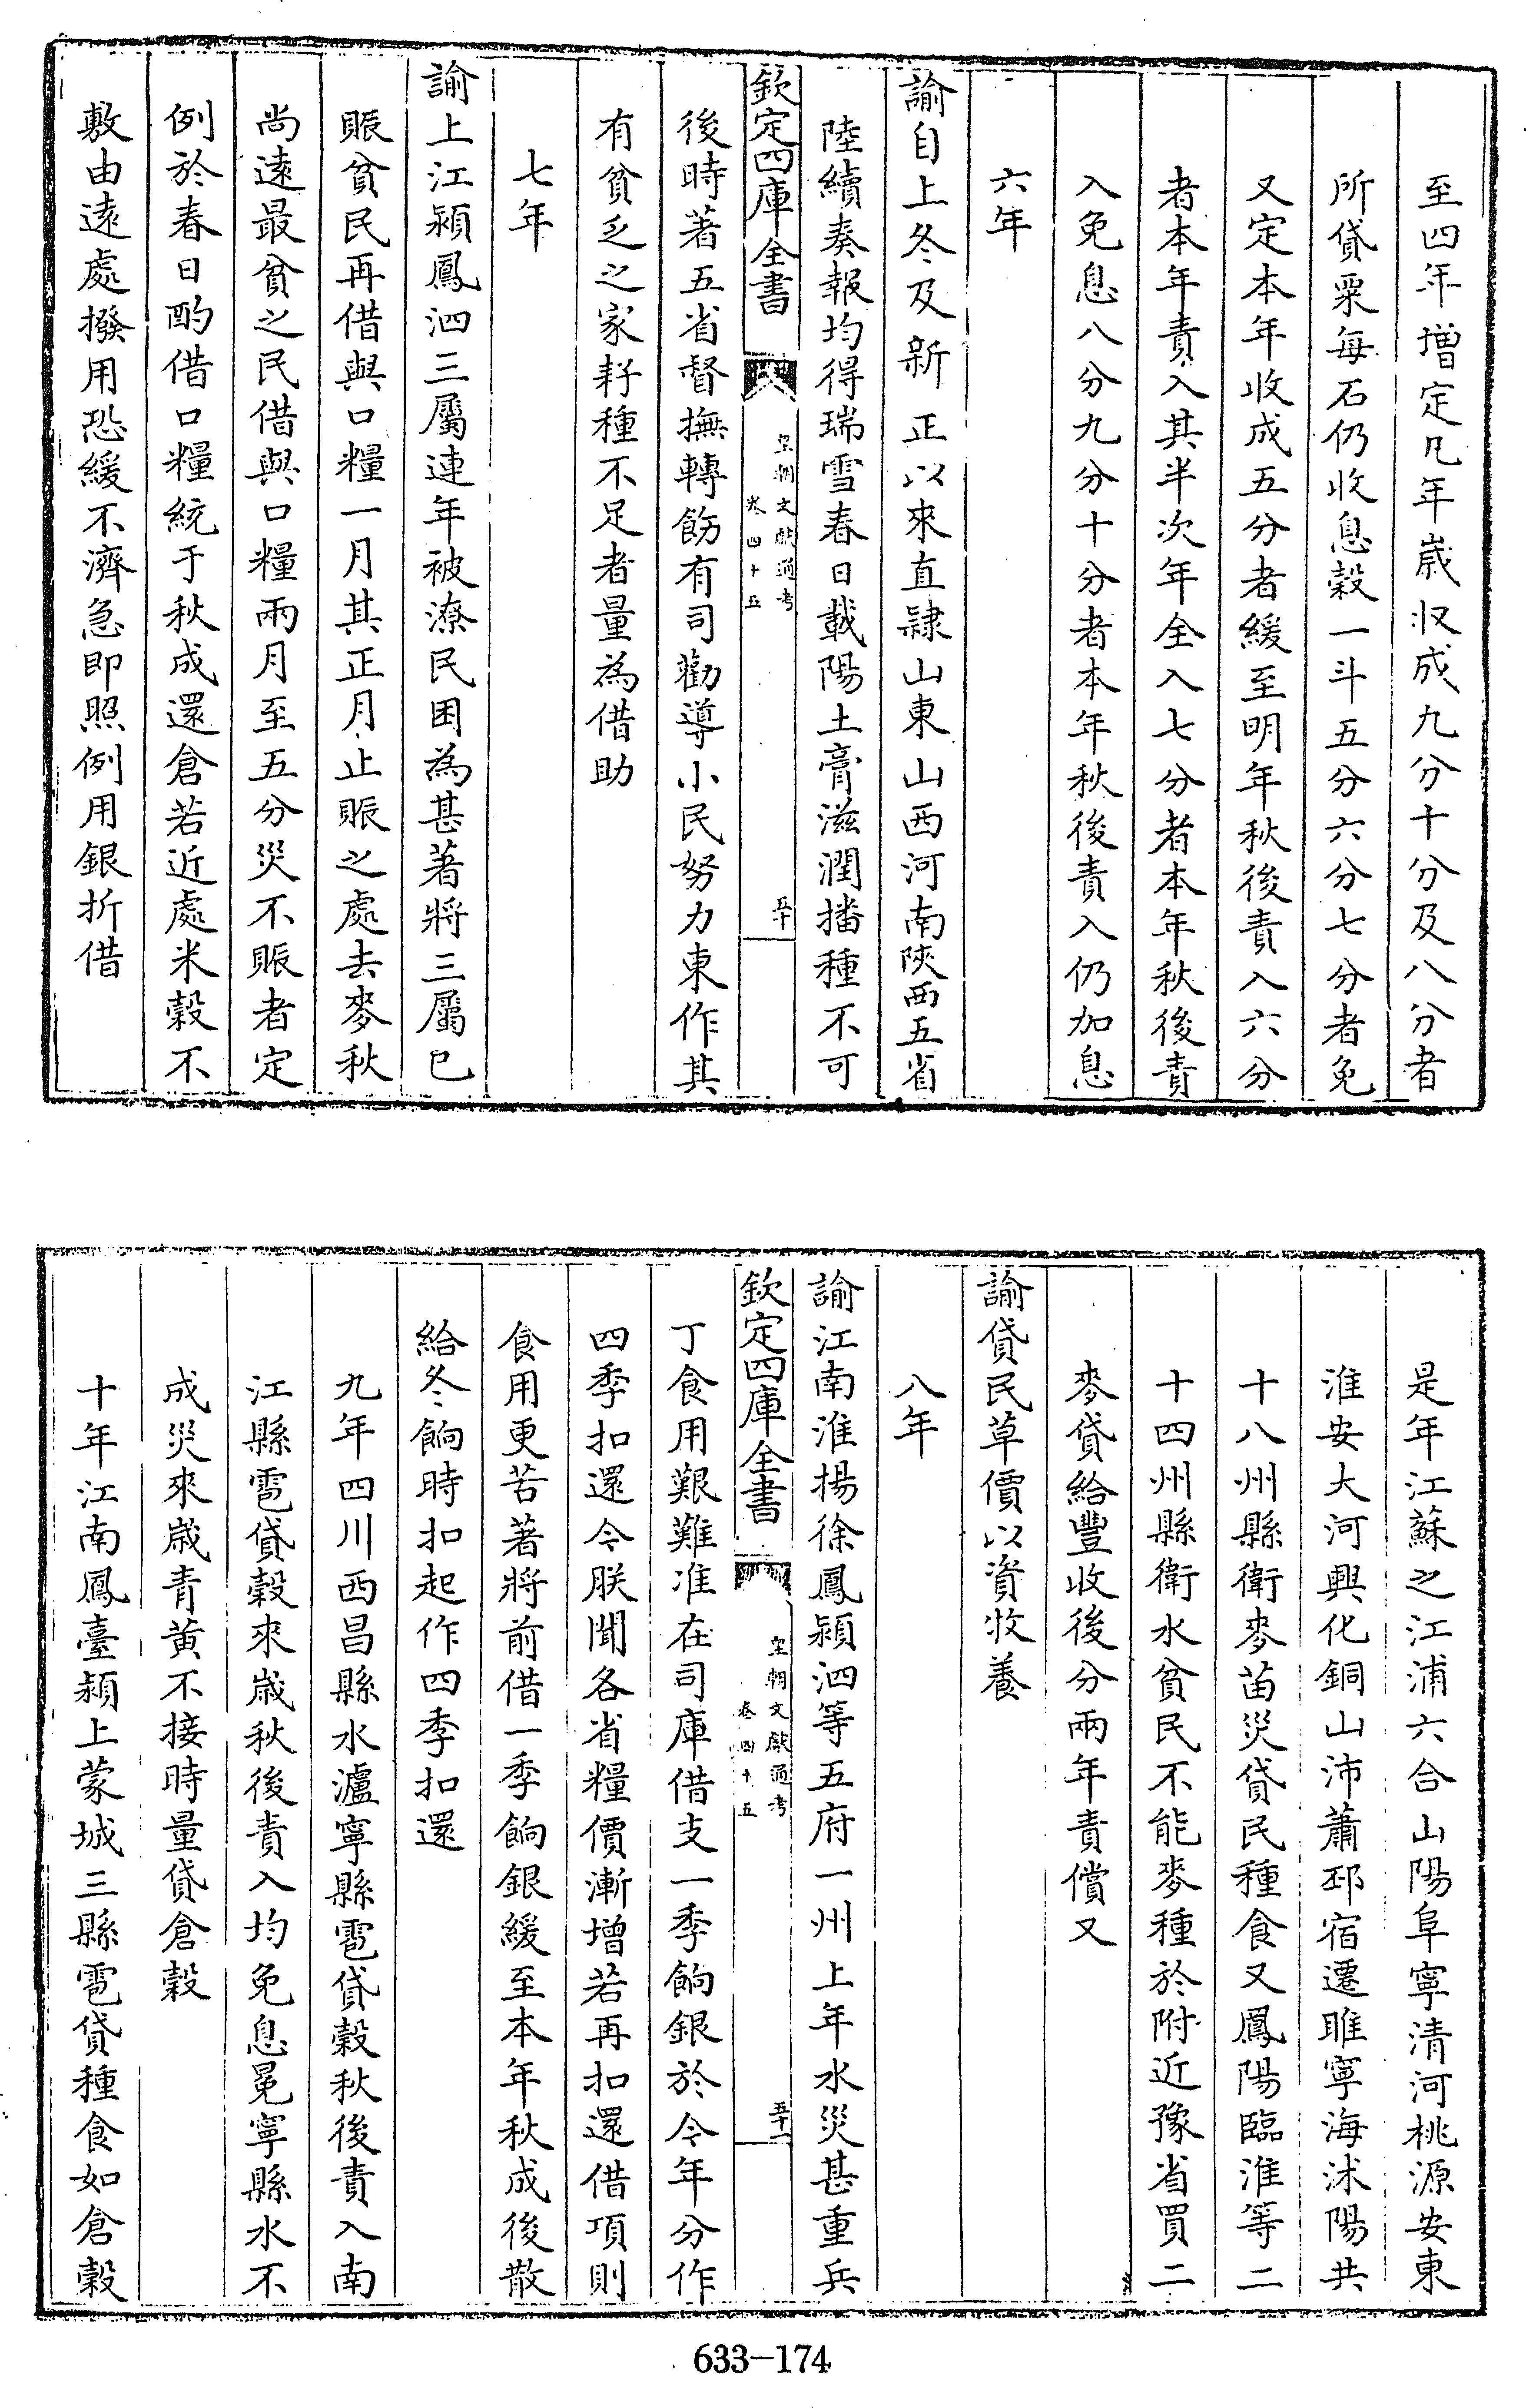 至四年增定凡年嵗収成九分十分及八分者
所貸粟每石仍收息穀一斗五分六分七分者免
又定本年收成五分者緩至明年秋後責入六分
者本年責入其半次年全入七分者本年秋後責
入免息八分九分十分者本年秋後責入仍加息
六年
諭自上冬及新正以來直隷山東山西河南陝西五省
陸續奏報均得瑞雪春日載陽土膏滋潤播種不可
欽定四庫全書
皇朝文獻通考
卷四十五
五十
後時著五省督撫轉飭有司勸導小民努力東作其
有貧乏之家耔種不足者量為借助
七年
諭上江潁鳳泗三屬連年被潦民困為甚著將三屬已
賑貧民再借與口糧一月其正月止賑之處去麥秋
尚遠最貧之民借與口糧兩月至五分災不賑者定
例於春日酌借口糧統于秋成還倉若近處米穀不
敷由遠處撥用恐緩不濟急即照例用銀折借
是年江蘇之江浦六合山陽阜寧清河桃源安東
淮安大河興化銅山沛蕭邳宿遷睢寧海沭陽共
十八州縣衛麥苗災貸民種食又鳳陽臨淮等二
十四州縣衛水貧民不能麥種於附近豫省買二
麥貸給豐收後分兩年責償又
諭貸民草價以資牧養
八年
諭江南淮揚徐鳳潁泗等五府一州上年水災甚重兵
欽定四庫全書
皇朝文獻通考
卷四十五
五十一
丁食用艱難准在司庫借支一季餉銀於今年分作
四季扣還今朕聞各省糧價漸增若再扣還借項則
食用更苦著將前借一季餉銀緩至本年秋成後散
給冬餉時扣起作四季扣還
九年四川西昌縣水瀘寧縣雹貸穀秋後責入南
江縣雹貸穀來歳秋後責入均免息冕寧縣水不
成災來歳青黄不接時量貸倉穀
十年江南鳳臺潁上蒙城三縣雹貸種食如倉穀
633-174